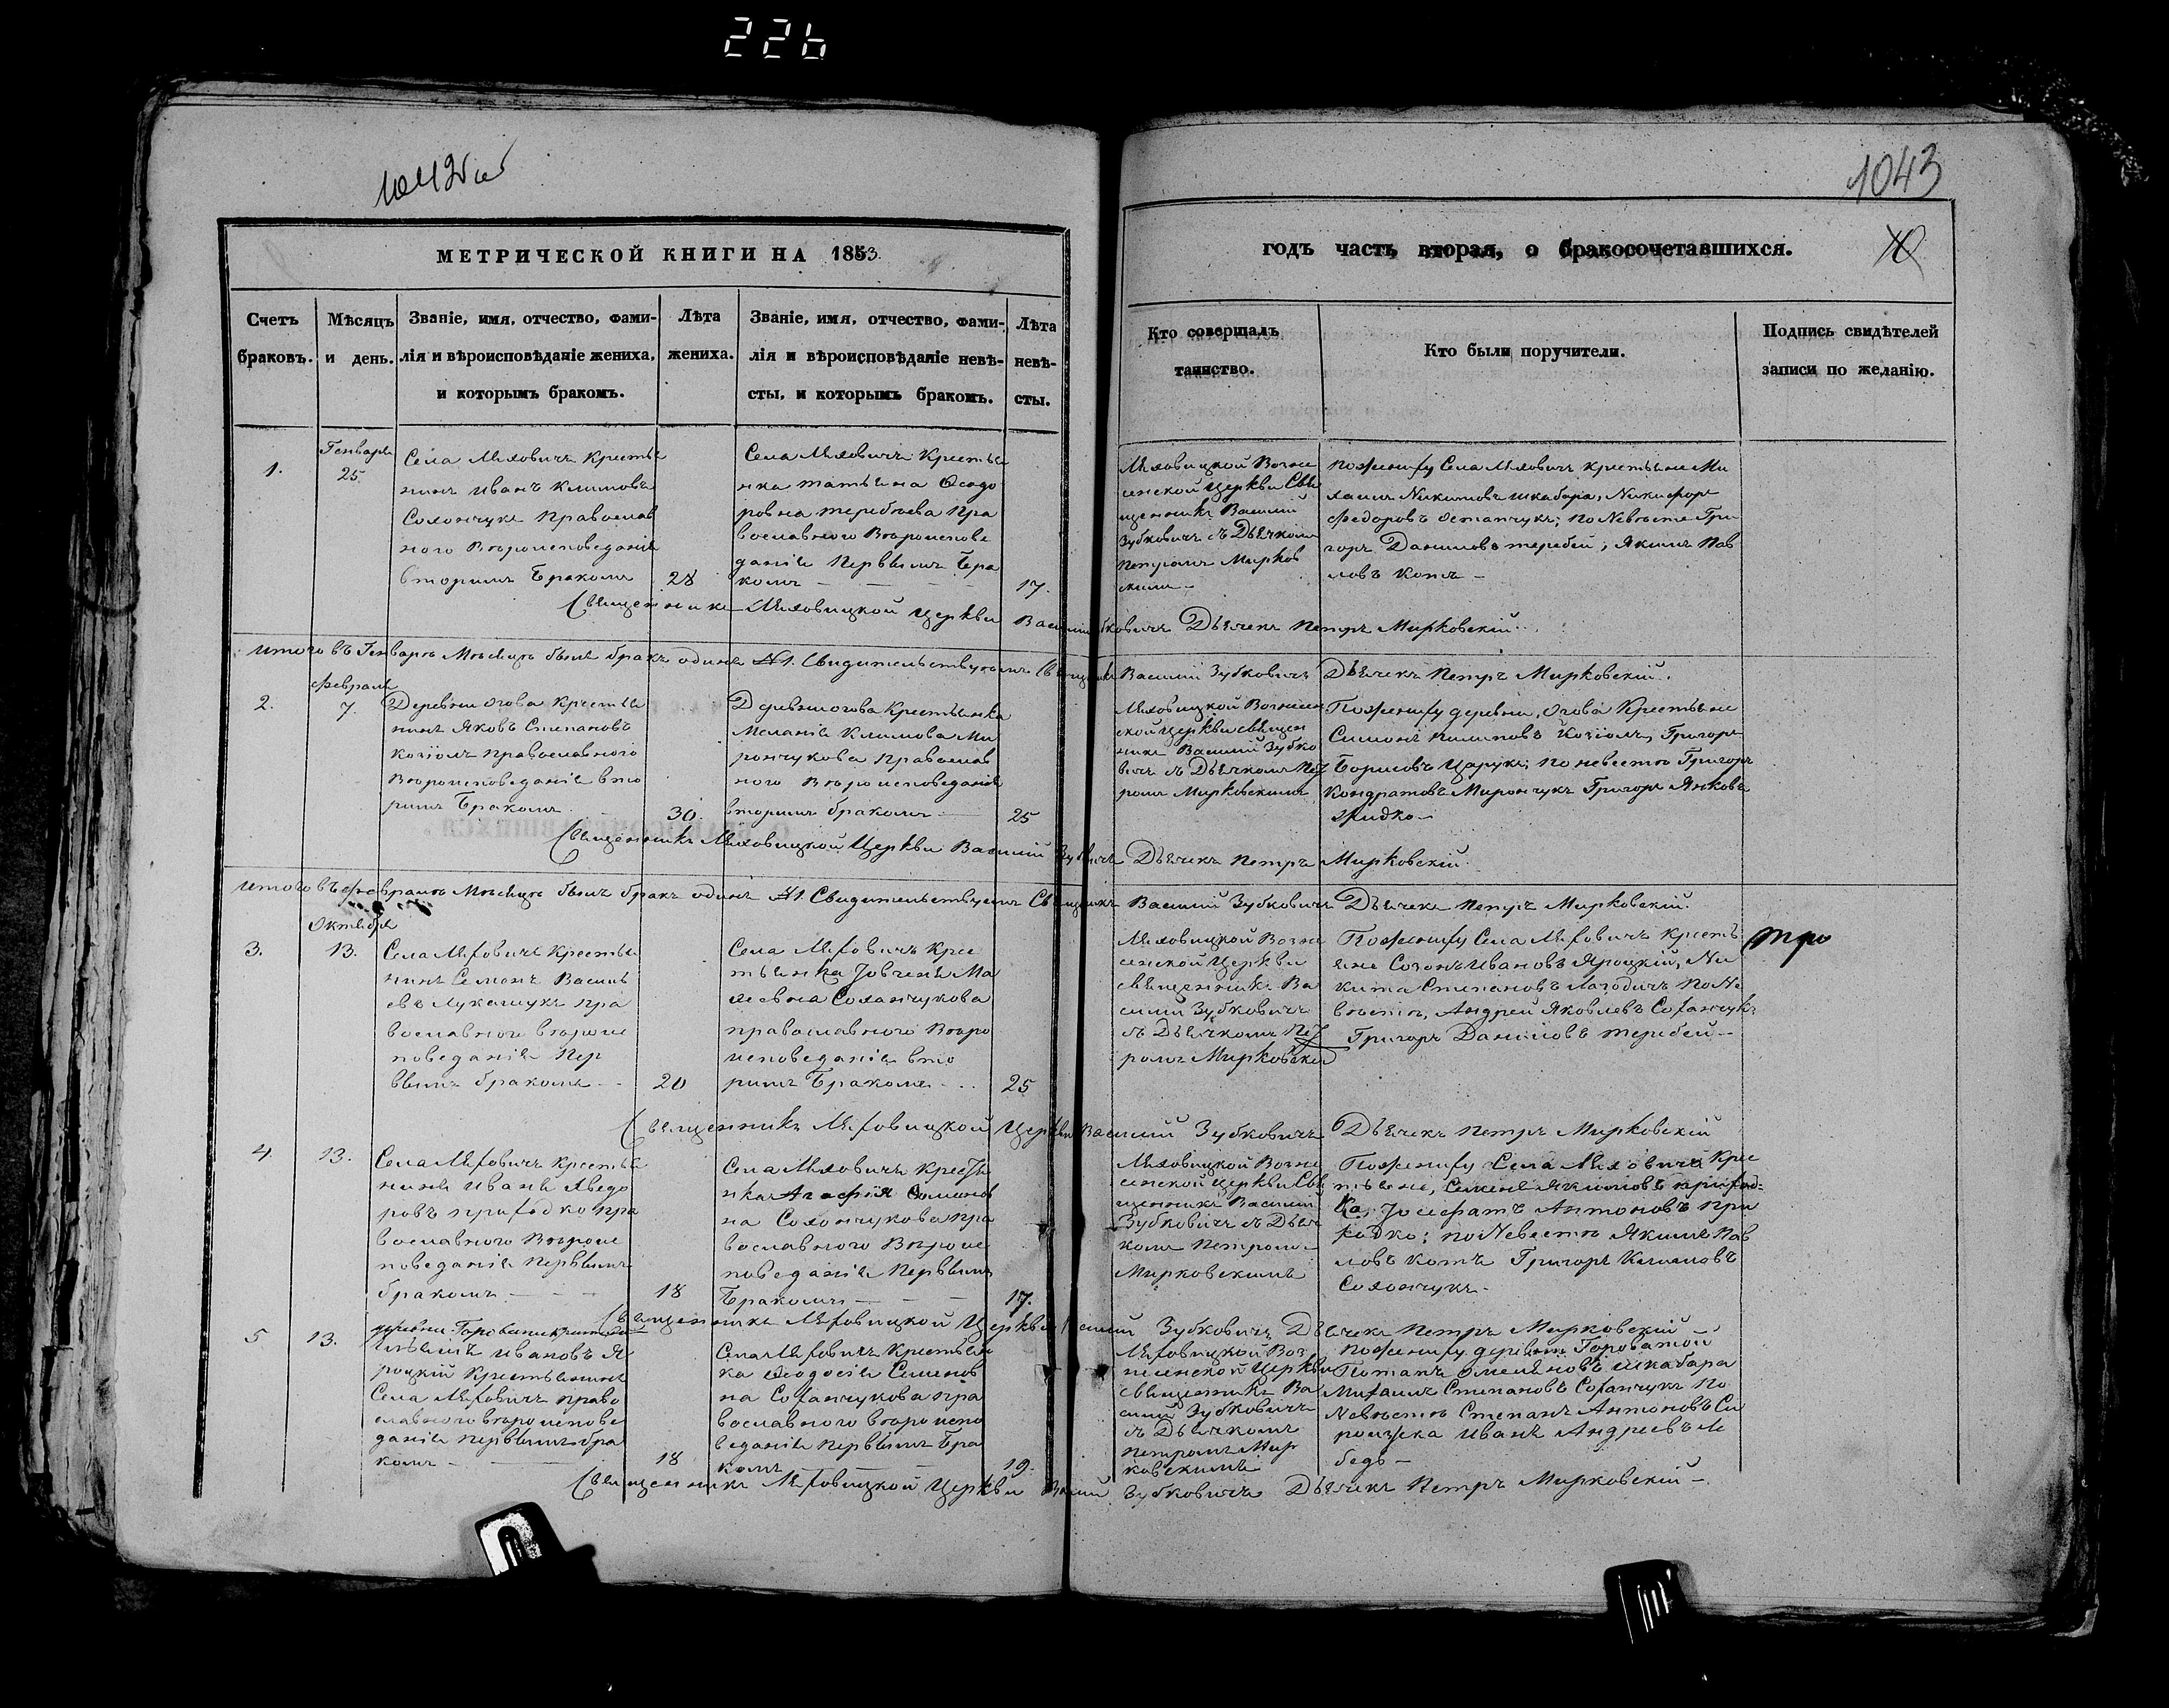 226
1043
МЕТРИЧЕСКОЙ КНИГИ НА 1853
годъ часть вторая, о бракосочетавшихся.
Счетъ браковъ.
Мѣсяцъ и день.
Званіе, имя, отчество, фами-
лія и вѣроисповѣданіе жениха,
и которымъ бракомъ.
Лѣта
жениха.
Званіе, имя, отчество, фами-
лія и вѣроисповѣданіе невѣ-
сты, и которымъ бракомъ.
Лѣта
невѣ-
сты.
Кто совершалъ
таинство.
Кто были поручители.
Подпись свидѣтелей
записи по желанію.
1.
Генваря
25
Села Мѣховичъ Крестья
нинъ Иванъ Климовъ
Солончукъ Православ
ного Вѣроисповеданія
вторимъ Бракомъ
28
Села Мѣховичъ Крестья
нка Татьяна Ѳеодо
ровна Теребѣева Пра
вославного Вѣроиспове
данія Первымъ Бра
комъ
17.
Мѣховицкой Возне
сенской Церкви Свя
щенникъ Василий
Зубковичъ съ Дьячкомъ
Петромъ Мирков
скимъ
По жениху Села Мѣховичъ крестьяне Ми
хаилъ Никитовъ Шкабара, Никифоръ
Федоровъ Остапчукъ; по Невѣсте Гри
горъ Даниловъ Теребей; Якимъ Пав
ловъ Котъ
Священникъ Мѣховицкой Церкви Василий Зубковичъ Дьячекъ Петръ Мирковскій
Итого въ Генварѣ Мѣсяцѣ былъ бракъ одинъ №1. Свидительствуемъ Священникъ Василий Зубковичъ Дьячекъ Петръ Мирковскій.
2.
Февраля
7.
Деревни Огова Крестья
нинъ Яковъ Степановъ
Козіолъ Православного
Вѣроисповеданія вто
римъ Бракомъ
30.
Деревни Огова Крестьянка
Меланія Климова Ми
рончукова Православ
ного Вѣроисповеданія
вторимъ бракомъ
25
Мѣховицкой Вознесен
ской Церкви Священ
никъ Василий Зубко
вичъ съ Дьячкомъ Пет
ромъ Мирковскимъ
По жениху деревни Огова Крестьяне
Симонъ Пилиповъ Козіолъ, Григоръ
Борисовъ Царукъ; по невесте Григоръ
Кондратовъ Мирончукъ Григоръ Янковъ
Жидко
Священникъ Мѣховицкой Церкви Василий Зубковичъ Дьячекъ Петръ Мирковскій.
Итого въ февралѣ Мѣсяцѣ былъ бракъ одинъ №1. Свидительствуемъ Священникъ Василий Зубковичъ Дьячекъ Петръ Мирковскій.
3.
Октября
13.
Села Мѣховичъ Крестья
нинъ Семонъ Василь
евъ Лукашукъ Пра
вославного вѣроис
поведанія Пер
вымъ бракомъ
20
Села Мѣховичъ Крес
тьянка Ма
Соланчукова
православного Вѣро
исповеданія вто
римъ Бракомъ
25
Мѣховицкой Возне
сенской Церкви
священникъ Ва
силий Зубковичъ
съ Дьячкомъ Пет
ромъ Мирковским
По жениху Села Мѣховичъ Кресть
яне Созонъ Ивановъ Яроцкій, Ни
кита Степановъ Лагодичъ По Не
вѣсте, Андрей Яковлевъ Соланчукъ
Григоръ Даниловъ Теребей
тро
Священникъ Мѣховицкой Церкви Василий Зубковичъ Дьячекъ Петръ Мирковскій
4.
13.
Села Мѣховичъ Крестья
нинъ Иванъ Ѳведо
ровъ Приходко Пра
вославного Вѣроис
поведанія Первымъ
бракомъ
18
Села Мѣховичъ Крестья
нка Агафія Симонов
на Солончукова Пра
вославного Вѣроис
поведанія Первымъ
Бракомъ
17.
Мѣховицкой Возне
сенской Церкви Свя
щенникъ Василий
Зубковичъ съ Дьяч
комъ Петромъ
Мирковскимъ
По жениху Села Мѣховичъ Крес
тьяне, Семенъ Якимовъ Приход-
ка, Иосефатъ Антоновъ При
ходко; по Невесте Якимъ Пав
ловъ Котъ Григоръ Климовъ
Солончукъ
Священникъ Мѣховицкой Церкви Василий Зубковичъ Дьячекъ Петръ Мирковскій
5
13.
деревни
Ивановъ Я
роцкій Крестьянинъ
Села Мѣховичъ Право
славного вѣроисповe
данія первымъ бра
комъ
18
Села Мѣховичъ Крестьян
ка Ѳеодосія Семенов
на Соланчукова Пра
вославного вѣроиспо
веданія первымъ Бра
комъ
19.
Мѣховицкой Воз
несенской Церкви
Священникъ Ва
силий Зубковичъ
съ Дьячкомъ
Петромъ Мир
ковскимъ
По жениху деревни Гороватой
Потапъ Омеляновъ Шкабара
Михаилъ Степановъ Соланчукъ По
Невѣсте Степанъ Антоновъ Си
Иванъ Андреевъ Ле
бедь
Священникъ Мѣховицкой Церкви Василий Зубковичъ Дьячекъ Петръ Мирковскій